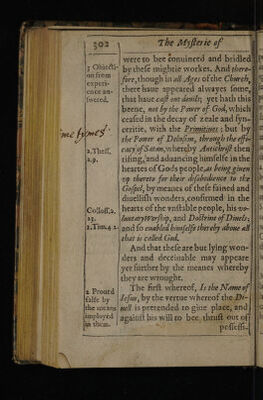 302
The Mysterie of
were to bee conuinced and bridled
by these mightie workes. And there-
fore, though in all Ages of the Church,
there haue appeared alwayes some,
that haue cast out deuils; yet hath this
beene, not by the Power of God, which
ceased in the decay of zeale and syn-
ceritie, with the Primitiues; but by
the Power of Delusion, through the effi-
cacy of Satan, whereby Antichrist then
rising, and aduancing himselfe in the
heartes of Gods people, as being giuen
vp thereto for their disobedience to the
Gospel, by meanes of these fained and
diuellish wonders, confirmed in the
heartes of the vnstable people, his vo-
luntary Worship, and Doctrine of Diuels;
and so enabled himselfe thereby aboue all
that is called God.
And that these are but lying won-
ders and deceiuable may appeare
yet further by the meanes whereby
they are wrought.
The first whereof, Is the Name of
Iesus, by the vertue whereof the Di-
uell is pretended to giue place, and
against his will to bee thrust out of
possess-
3 Obiecti-
on from
experi-
ence an-
swered.
some tymes
2. Thess.
2.9.
Coloss. 2.
23.
2. Tim. 4.1
2 Proued
false by
the means
imployed
in them.